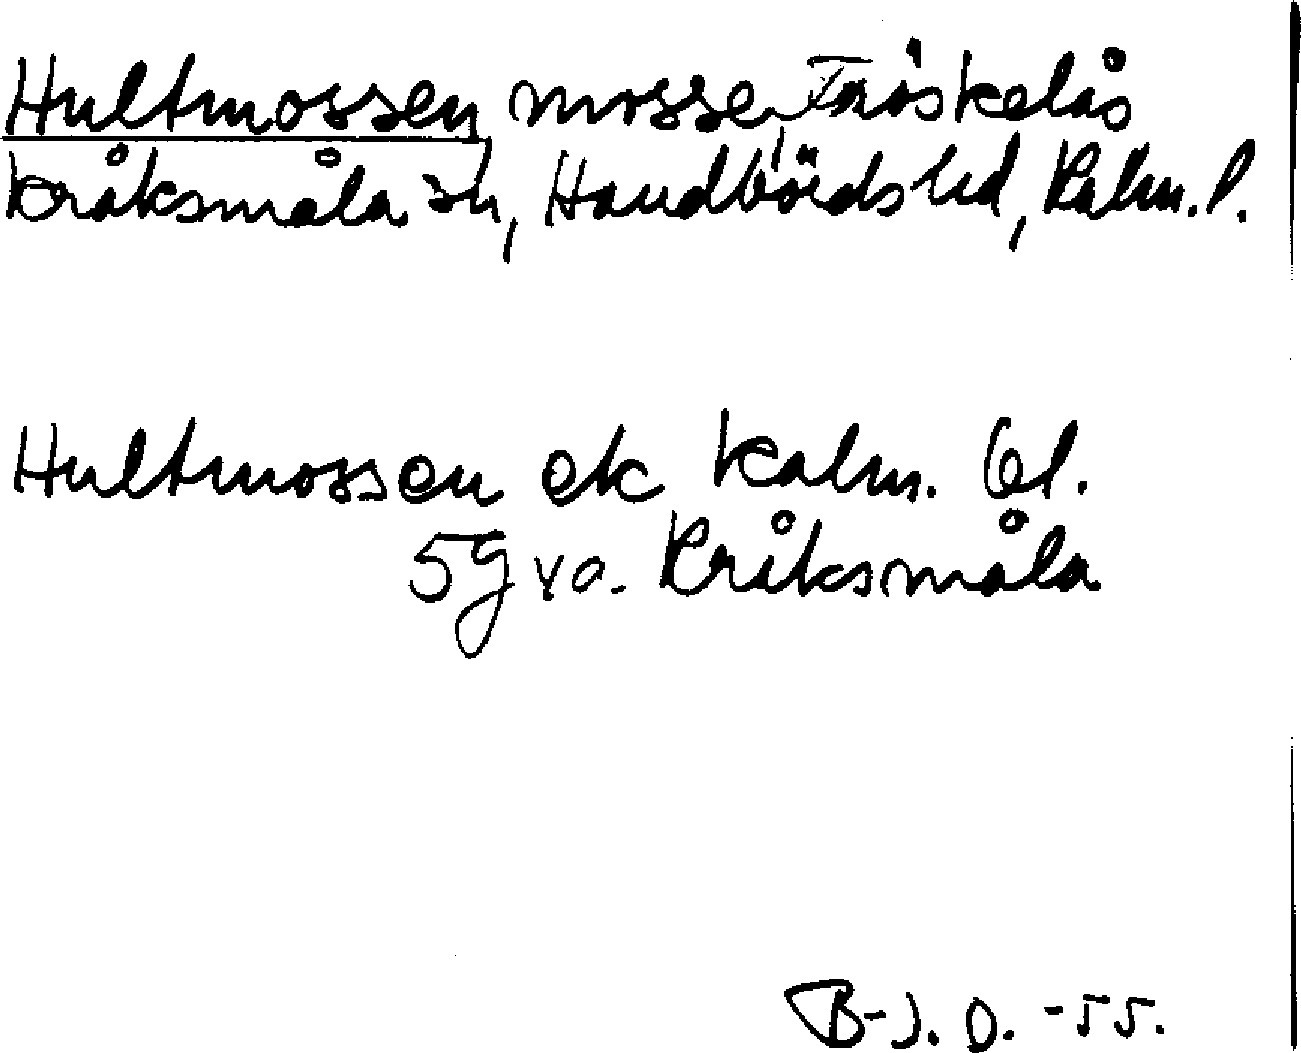 Hultmossen mosse, Fröskelås
Kråksmåla sn, Handbörds hd, Kalm. l.
Hultmossen ek Kalm. 6l.
5g va. Kråksmåla
B-J. O. -55.